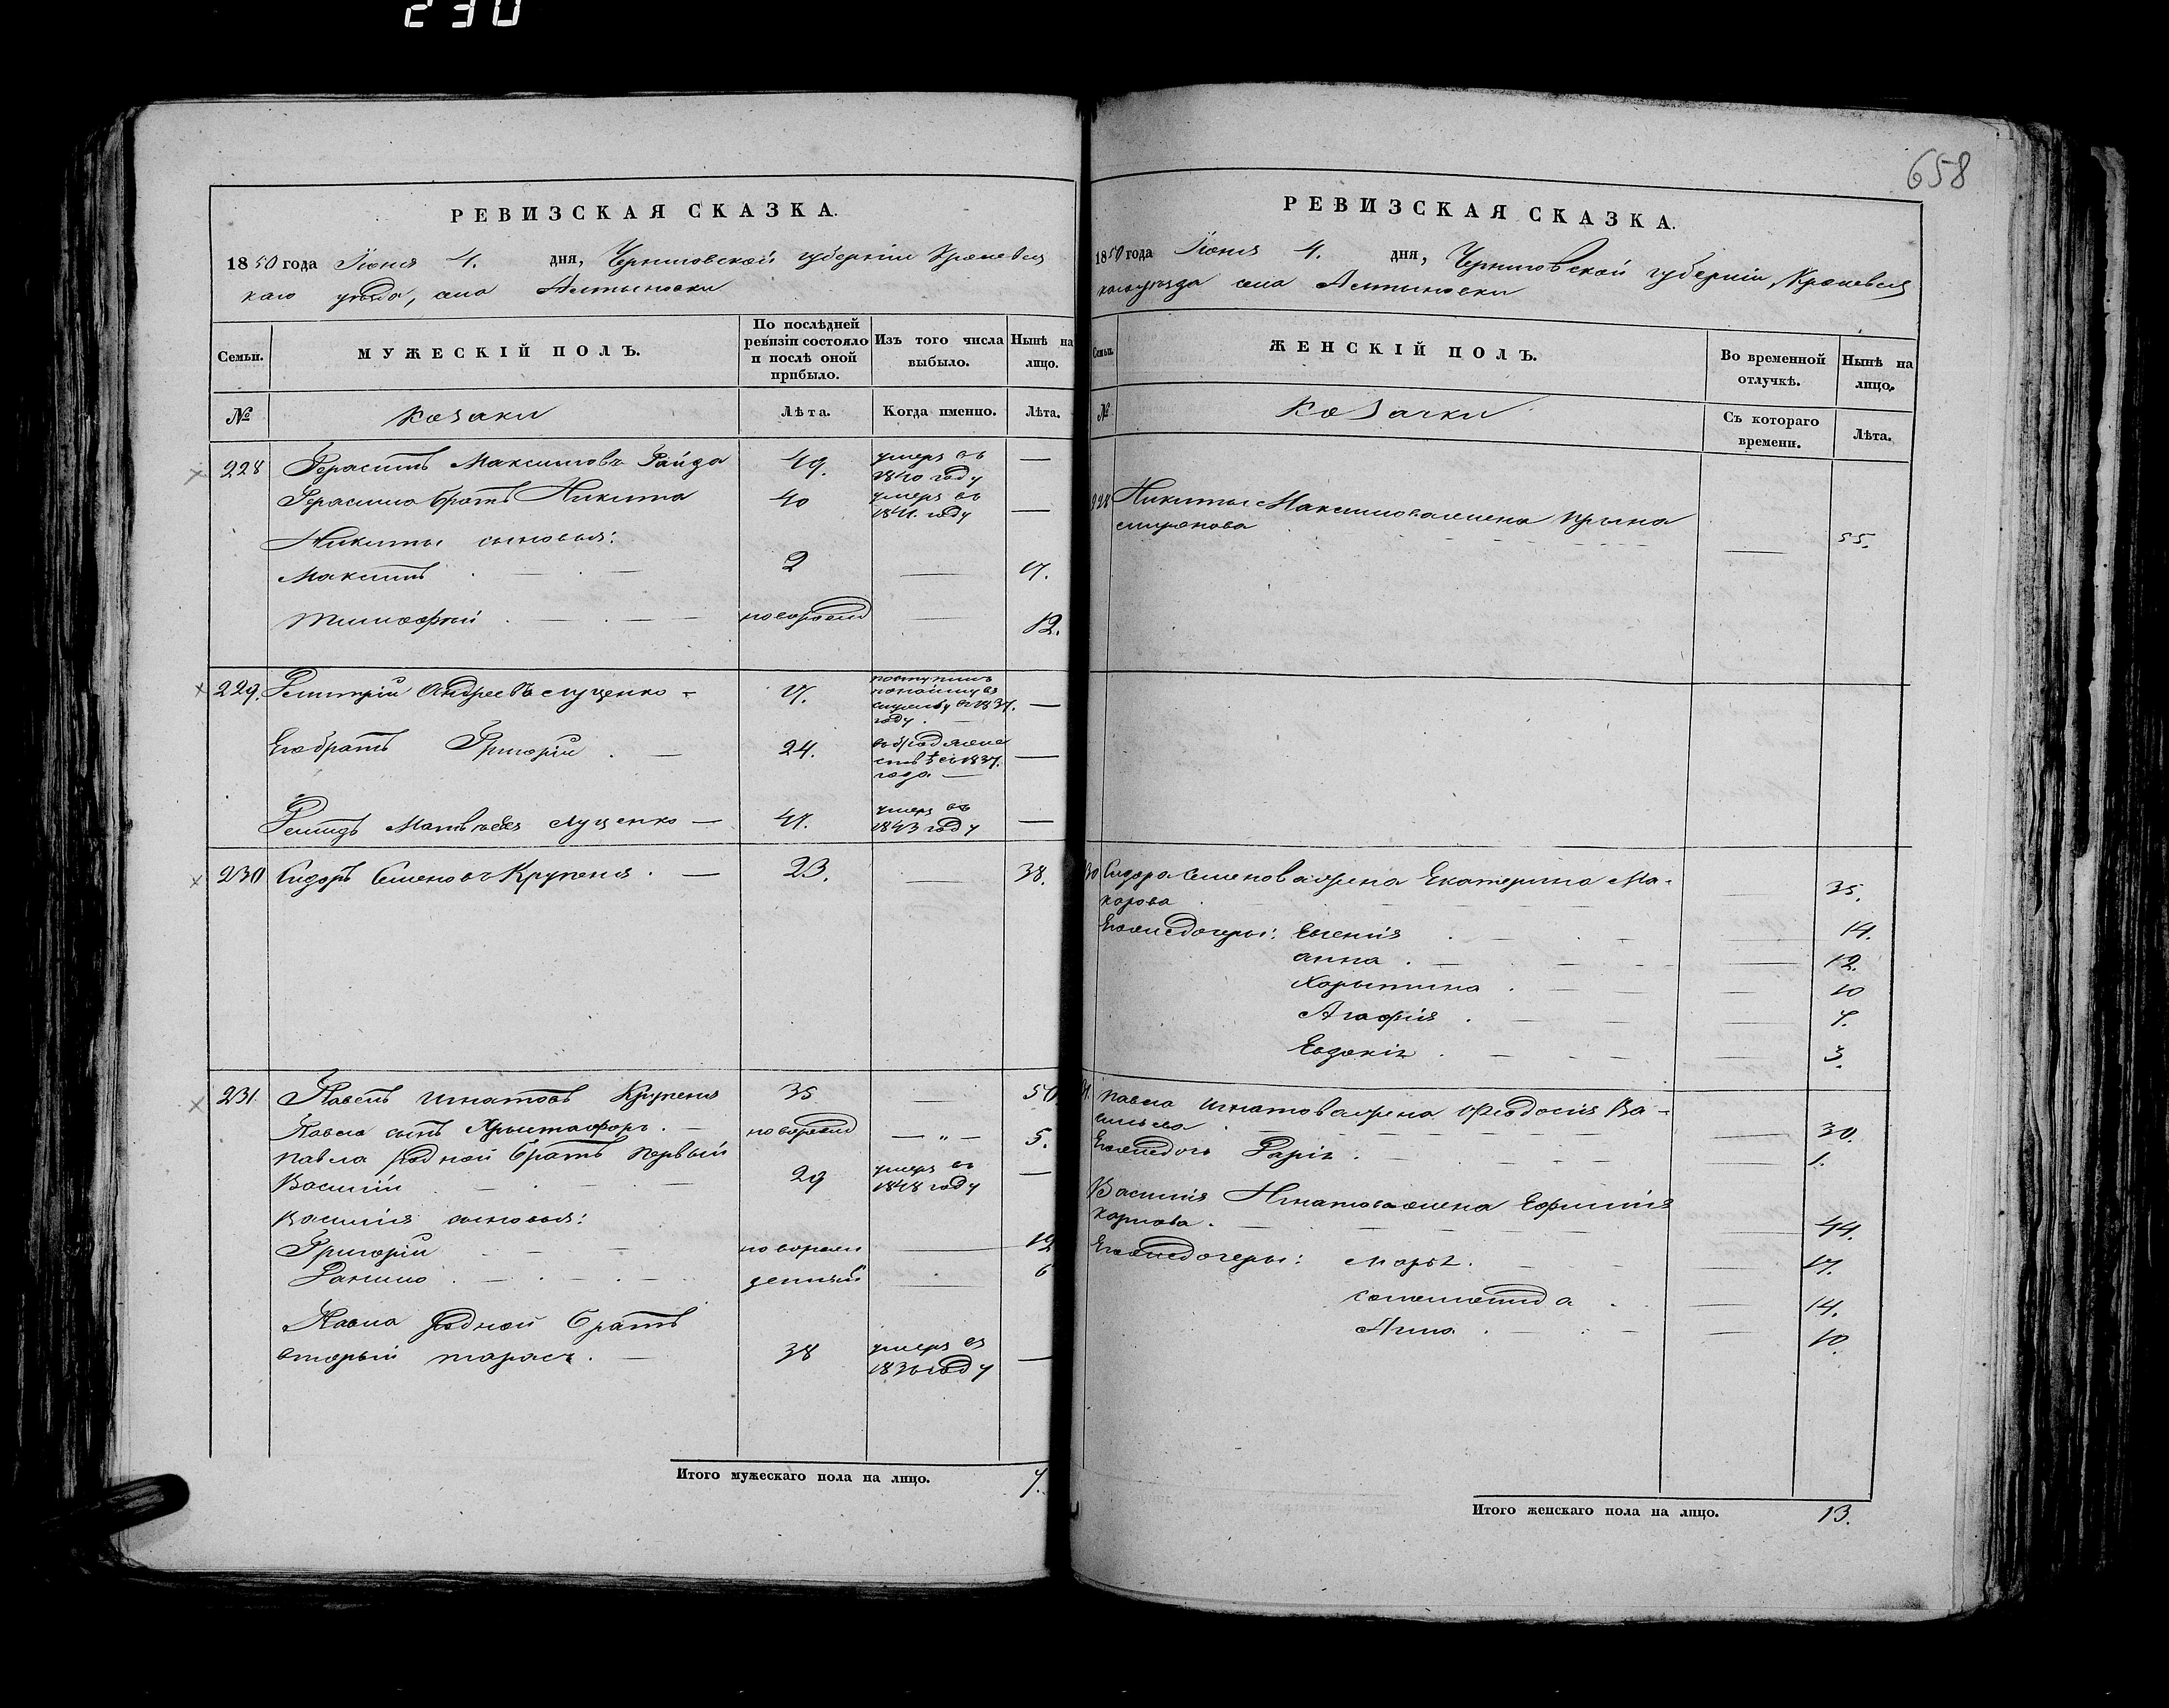 230
658
РЕВИЗСКАЯ СКАЗКА.
1850 года Июня 4. дня, Черниговской губерніи Кролевец
каго уѣзда, села Алтыновки
Семьи. МУЖЕСКІЙ ПОЛЪ. По послѣдней ревизіи состояло и послѣ оной прибыло. Изъ того числа выбыло. Нынѣ на лицо.
№ Козаки Лѣта. Когда именно. Лѣта.
228 Герасимъ Максимовъ Гайда 49. умеръ въ 1840 году —
Герасима братъ Никита 40 умеръ въ 1841. году —
Никиты сыновья:
Максимъ 2 — 17.
Тимофей новорожд — 12.
229. Дмитрій Андреевъ Луценко 17. поступилъ службу въ 1837. году —
Его братъ Григорій 24. въ бродяжествѣ съ 1837. года —
Демидъ Матвѣевъ Луценко — 47. умеръ въ 1843 году —
230 Сидоръ Семеновъ Крупеня — 23. — 38.
231. Павелъ Игнатовъ Крупеня 35 — 50
Павла сынъ Хрыстофоръ. новорожд — „ — 5.
Павла родной братъ первый
Василій 29 умеръ въ 1848 году —
Василія сыновья:
Григорій новорож — 12
Данило денный — 6
Павла родной братъ
вторый Тарасъ. — 38 умеръ въ 1836 году —
Итого мужескаго пола на лицо. 7.
РЕВИЗСКАЯ СКАЗКА.
1850 года Июня 4. дня, Черниговской губерніи, Кролевец
каго уѣзда села Алтыновки
Семьи. ЖЕНСКІЙ ПОЛЪ. Во временной отлучкѣ. Нынѣ на лицо.
№ Козачки Съ котораго времени. Лѣта.
228 Никиты Максимова жена Ирина
— 55.
30 Сидора Семенова жена Екатерина Ма-
карова — 35.
Его же дочеры: Евгенія — 14.
Анна — 12.
Харытина — 10
Агафія — 7.
Евдокія — 3.
31. Павла Игнатова жена Феодосія Ва-
сильева — 30.
Его же дочь Дарія — 1.
Василія Игнатова жена Ефимія
Карпова — 44.
Его же дочеры: Марья — 17.
— 14.
Анна — 10.
Итого женскаго пола на лицо. 13.